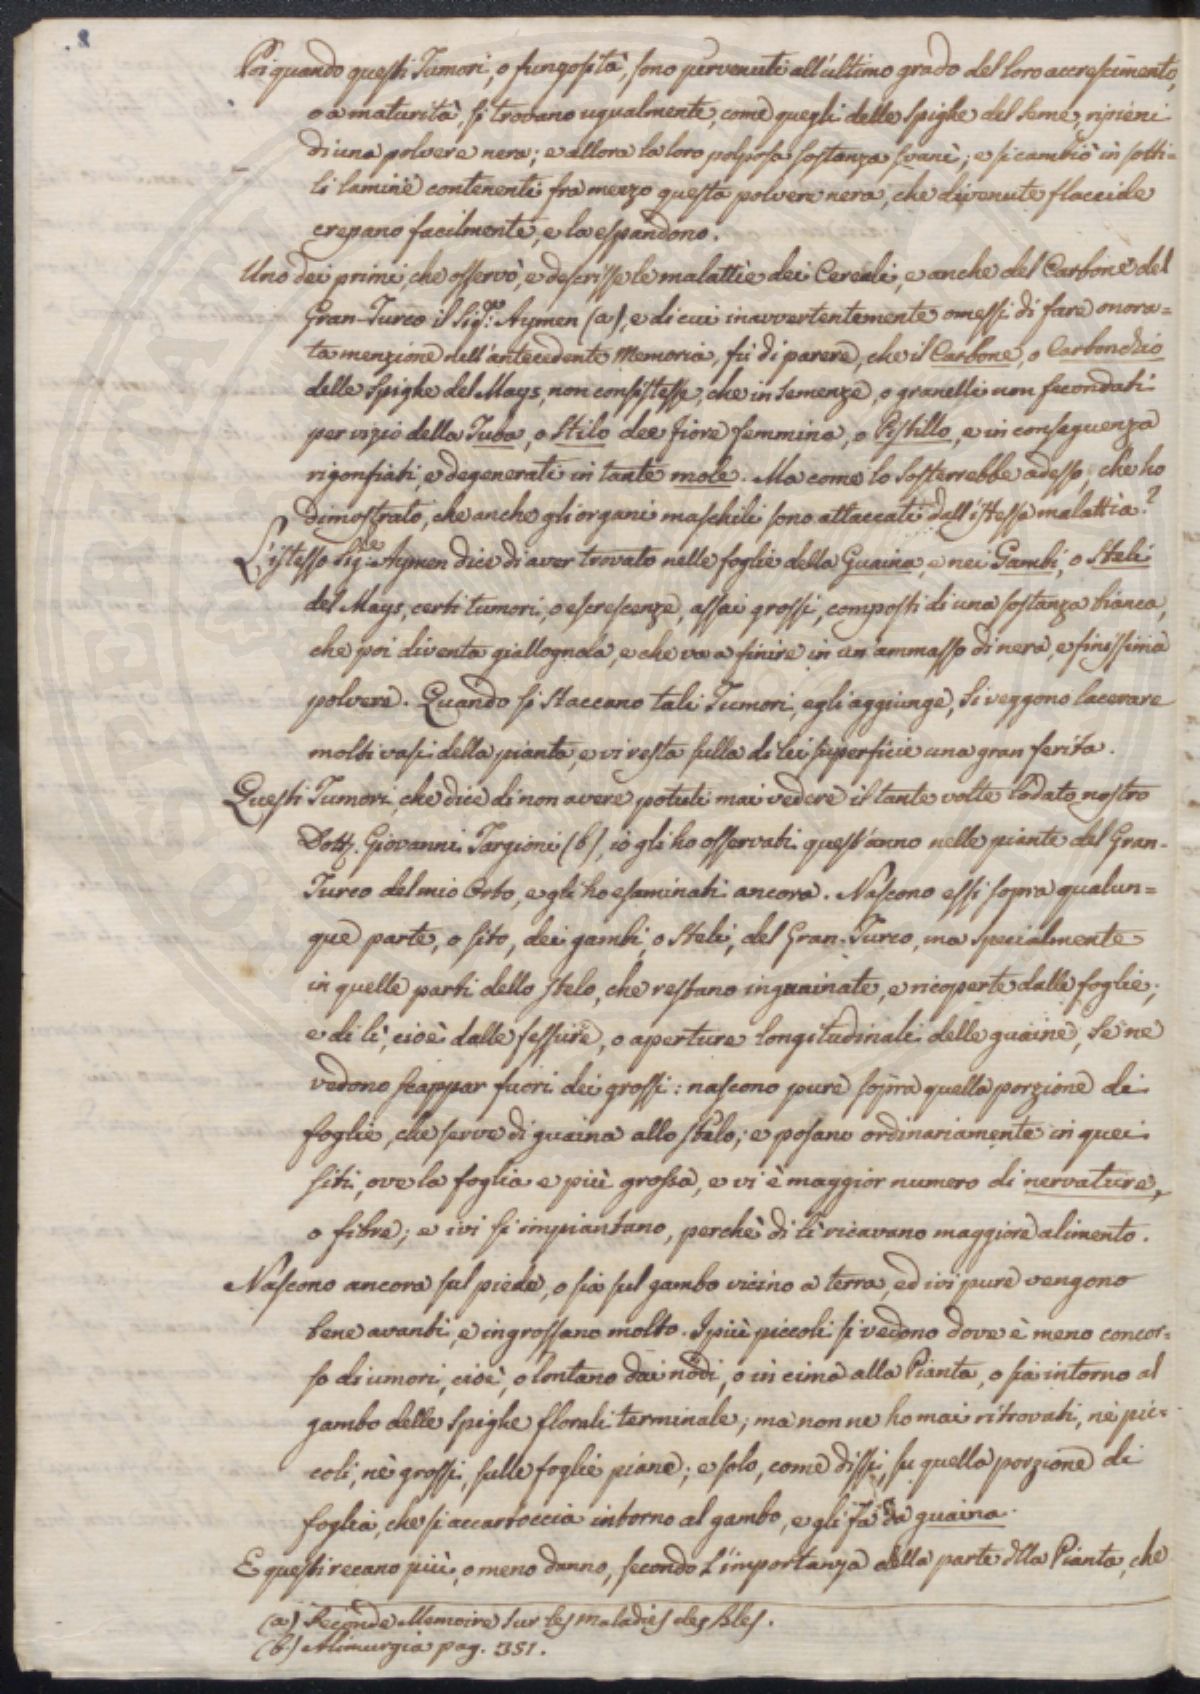 8
Poi quando questi Tumori, o fungosità, sono pervenuti all'ultimo grado del loro accrescimento,
o a maturità, si trovano ugualmente, come quegli delle Spighe del Seme, ripieni
di una polvere nera; e allora la loro polposa sostanza svanì; e si cambiò in sotti=
li lamine contenenti fra mezzo questa polvere nera, che divenute flaccide
crepano facilmente, e la espandono.
Uno dei primi, che osservò, e descrisse le malattie dei Cereali, e anche del Carbone del
Gran-Turco il Sig.r Aymen (a), e di cui inavvertentemente omessi di fare onora=
ta menzione nell'antecedente Memoria, fù di parere, che il Carbone, o Carbonchio
delle Spighe del Mays, non consistesse, che in Semenze, o granelli non fecondati
per vizio della Tuba, o Stilo del fiore femmina, o Pistillo, e in conseguenza
rigonfiati, e degenerati in tante mole. Ma come lo sosterrebbe adesso, che ho
dimostrato, che anche gli organi maschili sono attaccati dall'istessa malattia?
L'istesso Sig.re Aymen dice di aver trovato nelle foglie della Guaina, e nei Gambi, o Steli
del Mays, certi tumori, o escrescenze, assai grossi, composti di una sostanza bianca,
che poi diventa giallognola, e che va a finire in un ammasso di nera, e finissima
polvere. Quando si staccano tali Tumori, egli aggiunge, si veggono lacerare
molti vasi della pianta, e vi resta sulla di lei superficie una gran ferita.
Questi Tumori, che dice di non avere potuti mai vedere il tante volte lodato nostro
Dott. Giovanni Targioni (b), io gli ho osservati quest'anno nelle piante del Gran-
Turco del mio Orto, e gli ho esaminati ancora. Nascono essi sopra qualun=
que parte, o sito, dei gambi, o steli, del Gran-Turco, ma specialmente
in quelle parti dello stelo, che restano inguainate, e ricoperte dalle foglie;
e di lì, cioè dalle fessure, o aperture longitudinali delle guaine, se ne
vedono scappar fuori dei grossi: nascono pure sopra quella porzione di
foglie, che serve di guaina allo stelo; e posano ordinariamente in quei
siti, ove la foglia e più grossa, e vi è maggior numero di nervature,
o fibre; e ivi si impiantano, perchè di lì ricavano maggiore alimento.
Nascono ancora sul piede, o sia sul gambo vicino a terra, ed ivi pure vengono
bene avanti, e ingrossano molto. I più piccoli si vedono dove è meno concor=
so di umori, cioè, o lontano dai nodi, o in cima alla Pianta, o sia intorno al
gambo delle Spighe florali terminale; ma non ne ho mai ritrovati, nè pic=
coli, nè grossi, sulle foglie piane; e solo, come dissi, su quella porzione di
foglia, che si accartoccia intorno al gambo, e gli fà da guaina.
E questi recano più, o meno danno, secondo l'importanza della parte dlla Pianta, che
(a) Seconde Memoire sur les maladies des bles.
(b) Alimurgia pag. 351.